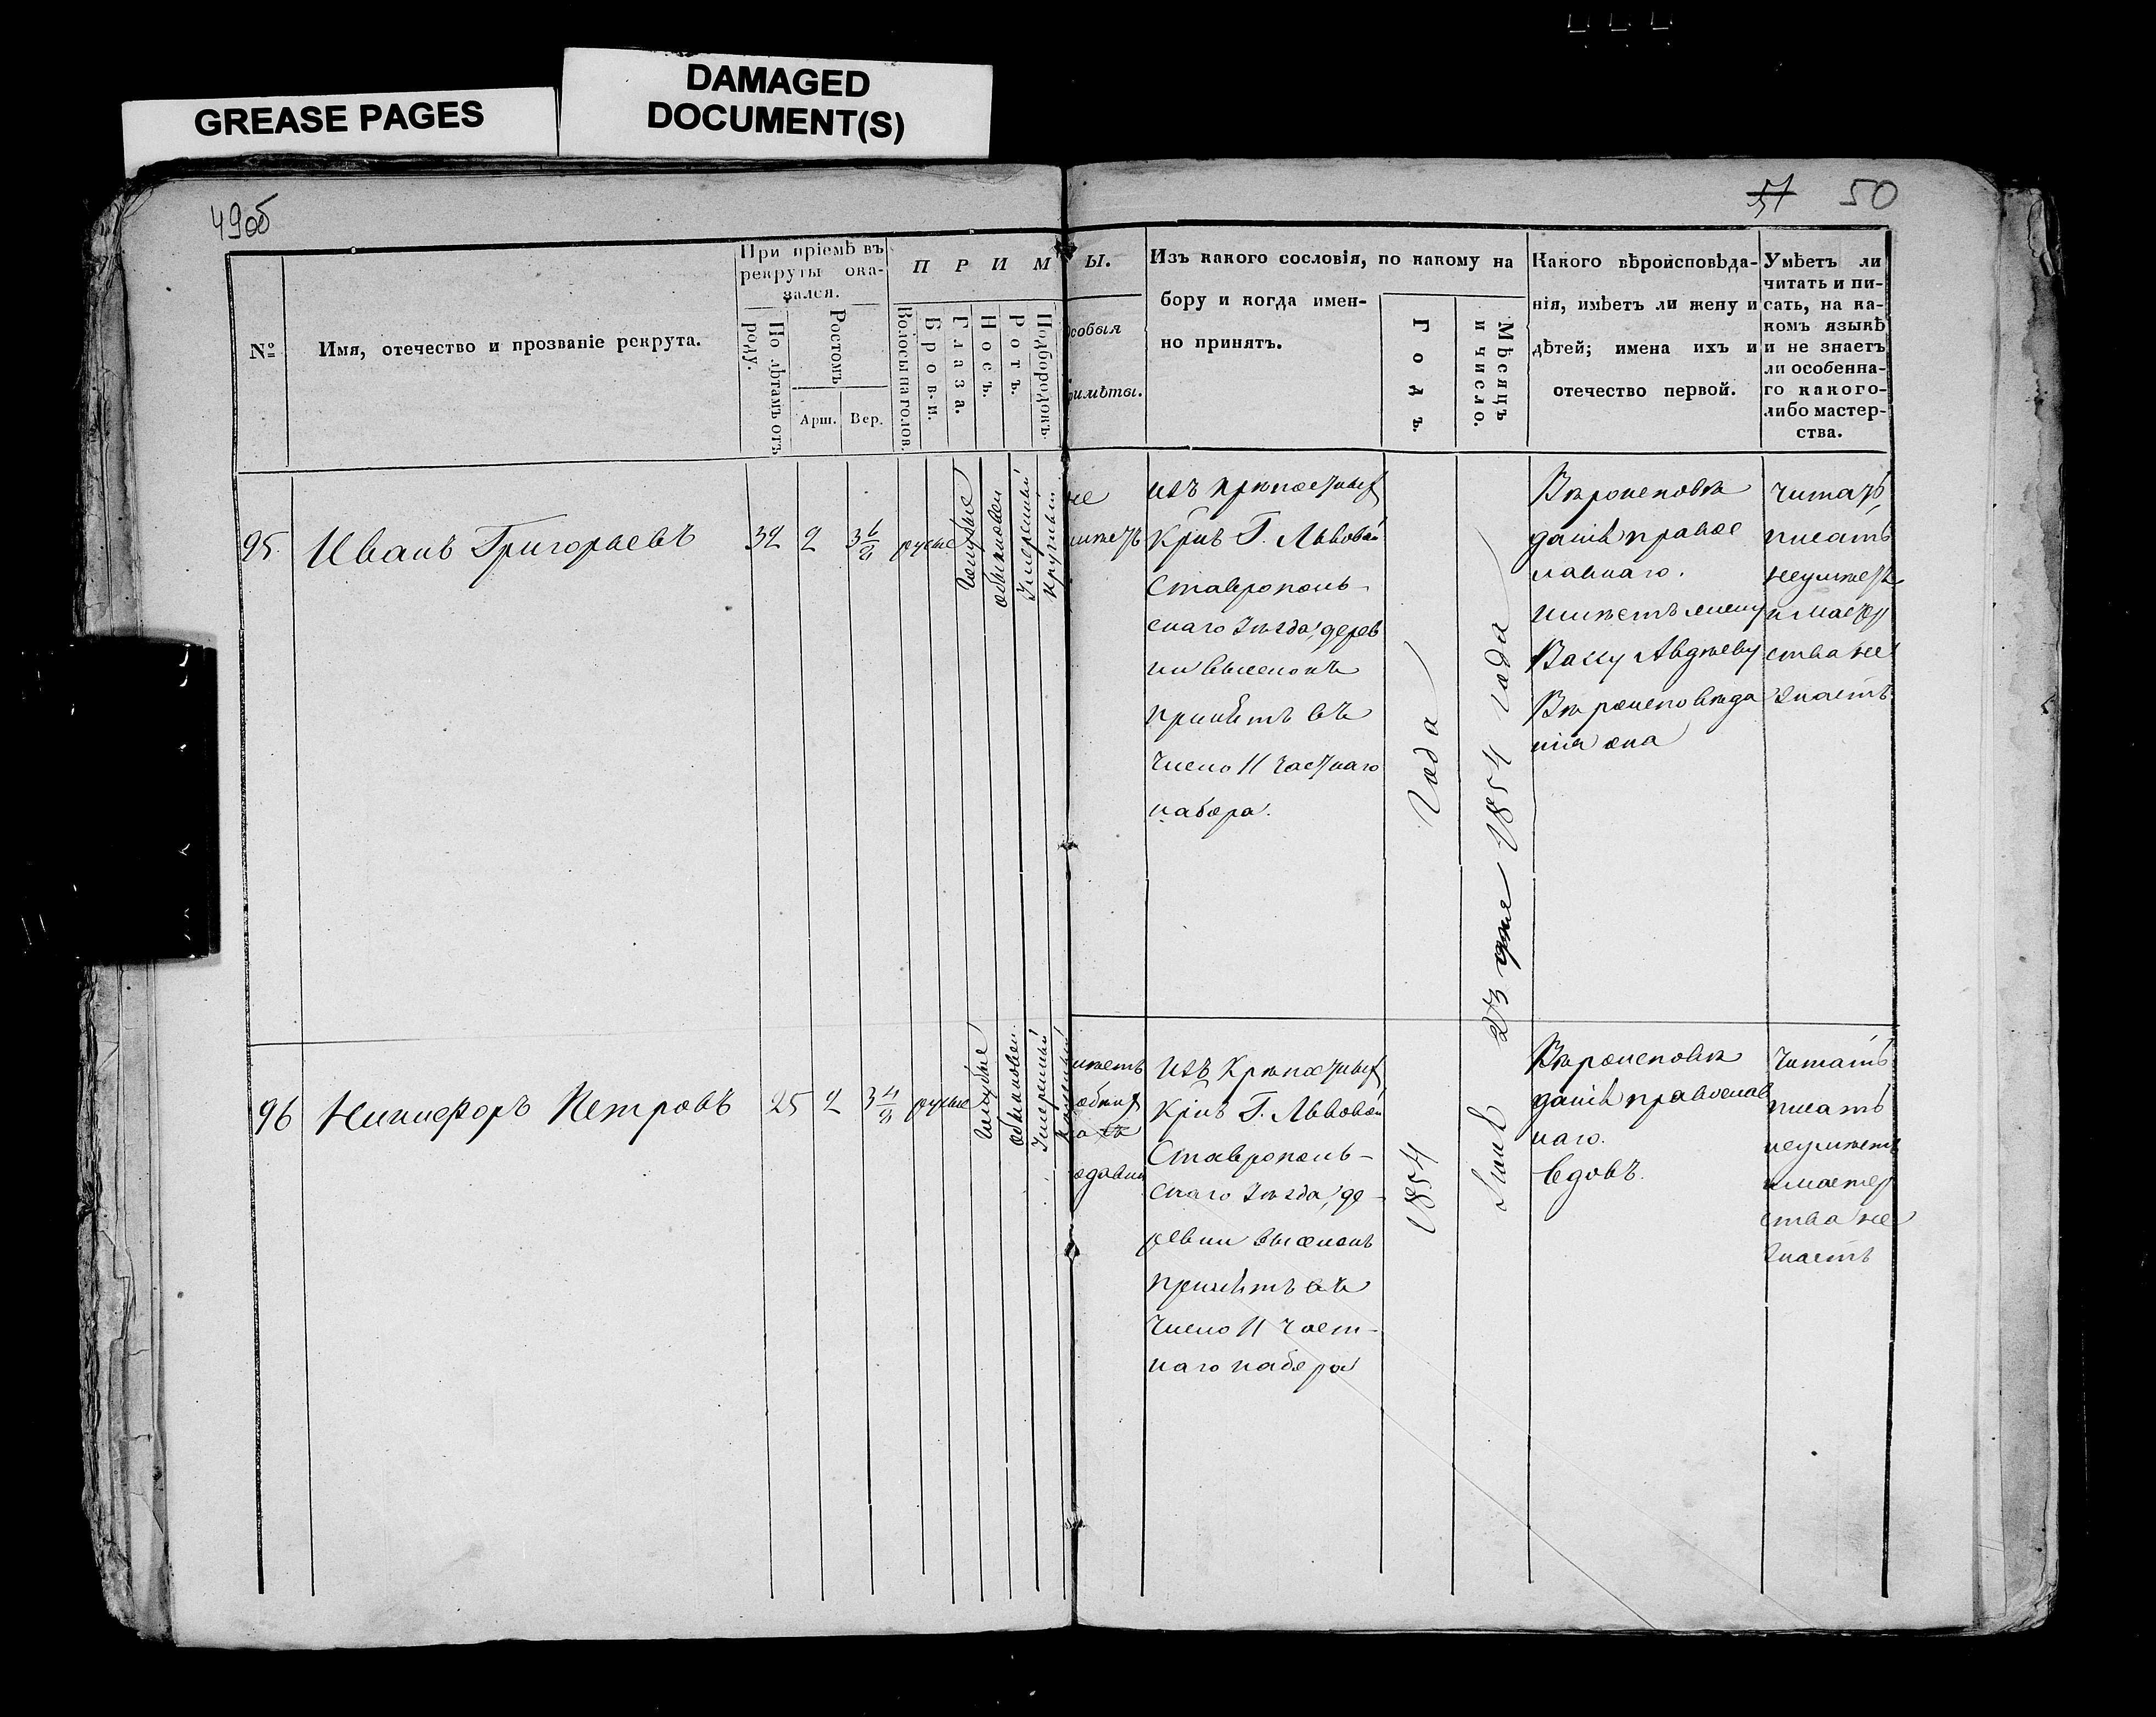 GREASE PAGES
DAMAGED
DOCUMENT(S)
49об
51 50
№
Имя, отечество и прозваніе рекрута.
При пріемѣ въ
рекруты ока-
зался.
По лѣтамъ отъ
роду.
Ростомъ
Арш. Вер.
П Р И М
Волосы на голов.
Брови.
Глаза.
Носъ.
Ротъ.
Подбородокъ.
Ы.
особыя
римѣты.
Изъ какого сословія, по какому на
бору и когда имен-
но принятъ.
Годъ.
Мѣсяцъ
и число.
Какого вѣроисповѣда-
нія, имѣетъ ли жену и
дѣтей; имена ихъ и
отечество первой.
Умѣетъ ли
читать и пи-
сать, на ка-
комъ языкѣ
и не знаетъ
ли особенна-
го какого-
либо мастер-
ства.
95. Иванъ Григорьевъ 32 2 3 6/8 русые
голубые
обыкновен
умеренный
круглый
не
имѣетъ
изъ крѣпостныхъ
Крнъ Г. Львовой
Ставрополь-
скаго уѣзда, дерев
ни Выселокъ
принятъ въ
число 11 частнаго
набора.
1854 Года
Іюнь 23 дня 1854 года
Вѣроисповѣ
данія правос
лавнаго.
имѣетъ жену
Вассу Авдѣеву
Вѣроисповѣда
нія она
читать,
писать
неумѣетъ
и мастер
ства не
знаетъ
96 Никифоръ Петровъ 25 2 3 4/8 русые
голубые
обыкновен.
умеренный
имѣетъ
изъ Крѣпостныхъ
Крнъ Г. Львовой
Ставрополь-
скаго уѣзда, де-
ревни Выселокъ
принятъ въ
число 11 част-
наго набора
Вѣроисповѣ
данія православ
наго.
вдовъ.
Читать
писать
неумѣетъ
и мастер
ства не
знаетъ